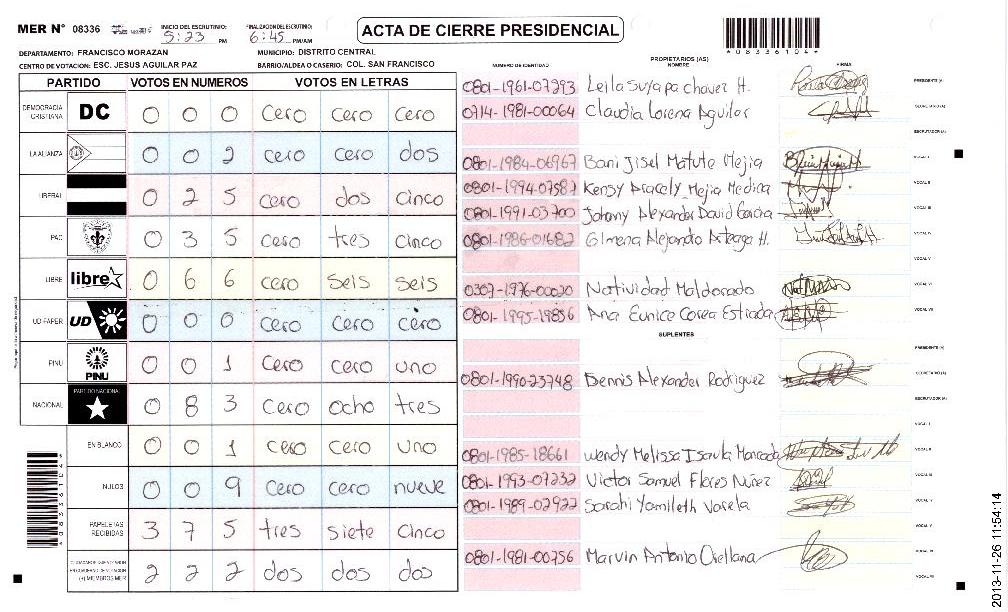 MER N° 08336
INICIO DEL ESCRUTINIO: 5:23 PM
FINALIZACION DEL ESCRUTINIO: 6:45 PM/AM
ACTA DE CIERRE PRESIDENCIAL
*08336104*
DEPARTAMENTO: FRANCISCO MORAZAN
MUNICIPIO: DISTRITO CENTRAL
CENTRO DE VOTACION: ESC. JESUS AGUILAR PAZ
BARRIO/ALDEA O CASERIO: COL. SAN FRANCISCO
PARTIDO VOTOS EN NUMEROS VOTOS EN LETRAS
DEMOCRACIA CRISTIANA DC 0 0 0 cero cero cero
LA ALIANZA 0 0 2 cero cero dos
LIBERAL 0 2 5 cero dos cinco
PAC 0 3 5 cero tres cinco
LIBRE libre 0 6 6 cero seis seis
UD FAPER UD 0 0 0 cero cero cero
PINU PINU 0 0 1 cero cero uno
NACIONAL PARTIDO NACIONAL 0 8 3 cero ocho tres
EN BLANCO 0 0 1 cero cero uno
NULOS 0 0 9 cero cero nueve
PAPELETAS RECIBIDAS 3 7 5 tres siete cinco
(+) MIEMBROS MER 2 2 2 dos dos dos
NUMERO DE IDENTIDAD PROPIETARIOS (AS) NOMBRE FIRMA
0801-1961-07293 Leila Suyapa Chavez H. PRESIDENTE (A)
0714-1981-00064 Claudia Lorena Aguilar SECRETARIO (A)
ESCRUTADOR (A)
0801-1984-06967 Bani Jisel Matute Mejia VOCAL I
0801-1994-07587 Kensy Aracely Mejia Medina VOCAL II
0801-1991-03700 Johnny Alexander David Garcia VOCAL III
0801-1986-01682 Gimena Alejandra Arteaga H. VOCAL IV
VOCAL V
0307-1976-00020 Natividad Maldonado VOCAL VI
0801-1995-19856 Ana Eunice Correa Estrada VOCAL VII
SUPLENTES
PRESIDENTE (A)
0801-1990-23748 Dennis Alexander Rodriguez SECRETARIO (A)
ESCRUTADOR (A)
VOCAL I
0801-1985-18661 Wendy Melissa Isaula Moncada VOCAL II
0801-1993-07232 Victor Samuel Flores Nuñez VOCAL III
0801-1989-02922 Sarahi Yamileth Varela VOCAL IV
VOCAL V
0801-1981-00756 Marvin Antonio Orellana VOCAL VI
VOCAL VII
2013-11-26 11:54:14